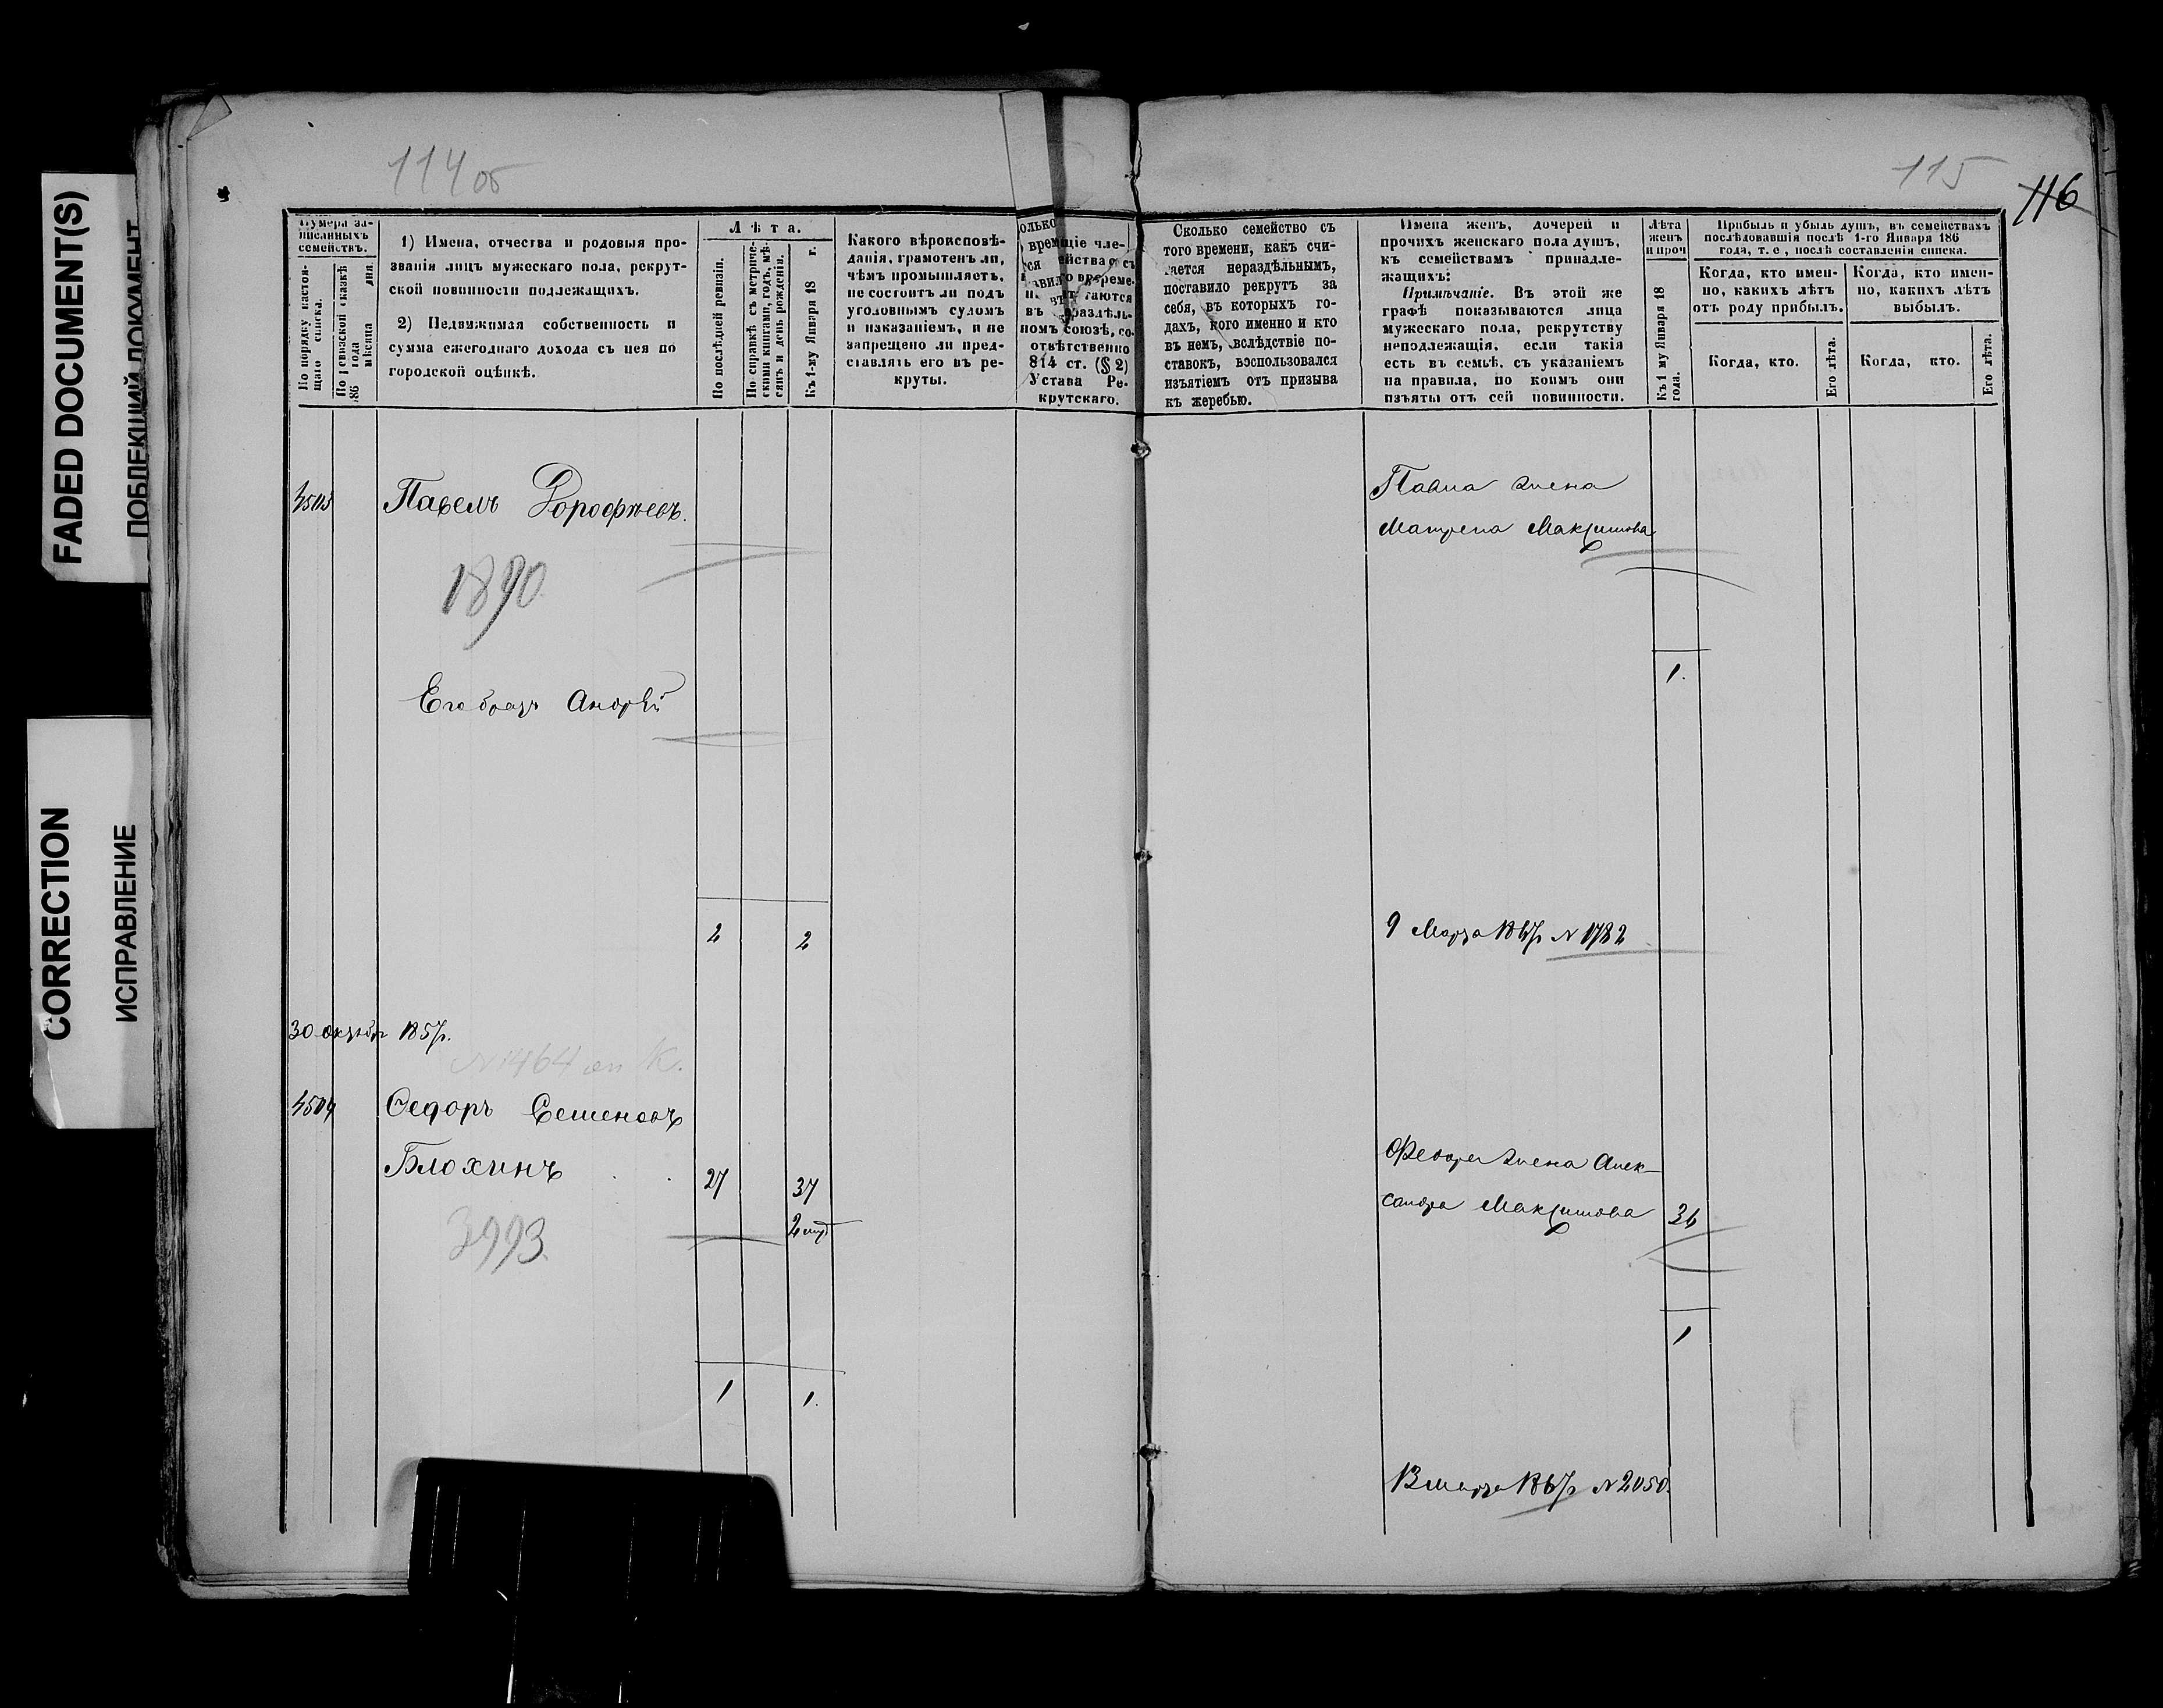 FADED DOCUMENT(S)
ПОБЛЕКШИЙ ДОКУМЕНТ
CORRECTION
ИСПРАВЛЕНИЕ
114 об
Нумера записанныхъ семействъ.
По порядку настоящаго списка.
По ревизской сказкѣ 186 года мѣсяца дня.
1) Имена, отчества и родовыя прозванія лицъ мужескаго пола, рекрутской повинности подлежащихъ.
2) Недвижимая собственность и сумма ежегоднаго дохода съ нея по городской оцѣнкѣ.
Лѣта.
По послѣдней ревизіи.
По справкѣ съ метрическими книгами, годъ, мѣсяцъ и день рожденія.
Къ 1-му Января 18 г.
Какого вѣроисповѣданія, грамотенъ ли, чѣмъ промышляетъ, не состоитъ ли подъ уголовнымъ судомъ и наказаніемъ, и не запрещено ли представлять его въ рекруты.
отвѣтственно
814 ст. (§ 2)
Устава Рекрутскаго.
4503
Павелъ Дорофѣевъ.
1890
Его братъ Андрѣй
2 2
30 октября 1857г.
N 1464
4504
Ѳедоръ Семеновъ
Блохинъ 27 37
3993
1 1.
115
116
Сколько семейство съ того времени, какъ считается нераздѣльнымъ, поставило рекрутъ за себя, въ которыхъ годахъ, кого именно и кто въ немъ, вслѣдствіе поставокъ, воспользовался изъятіемъ отъ призыва къ жеребью.
Имена женъ, дочерей и прочихъ женскаго пола душъ, къ семействамъ принадлежащихъ:
Примѣчаніе. Въ этой же графѣ показываются лица мужескаго пола, рекрутству неподлежащія, если такія есть въ семьѣ, съ указаніемъ на правила, по коимъ они изъяты отъ сей повинности.
Лѣта женъ и проч
Къ 1 му Января 18 года.
Прибыль и убыль душъ, въ семействахъ послѣдовавшія послѣ 1-го Января 186 года, т. е, послѣ составленія списка.
Когда, кто именно, какихъ лѣтъ отъ роду прибылъ.
Когда, кто именно, какихъ лѣтъ выбылъ.
Когда, кто.
Его лѣта.
Когда, кто.
Его лѣта.
Павла жена
Матрена Максимова
1.
9 Марта 1867г N 1782
Федора жена Алек-
сандра Максимова
1
13 марта 1867г N 2050.